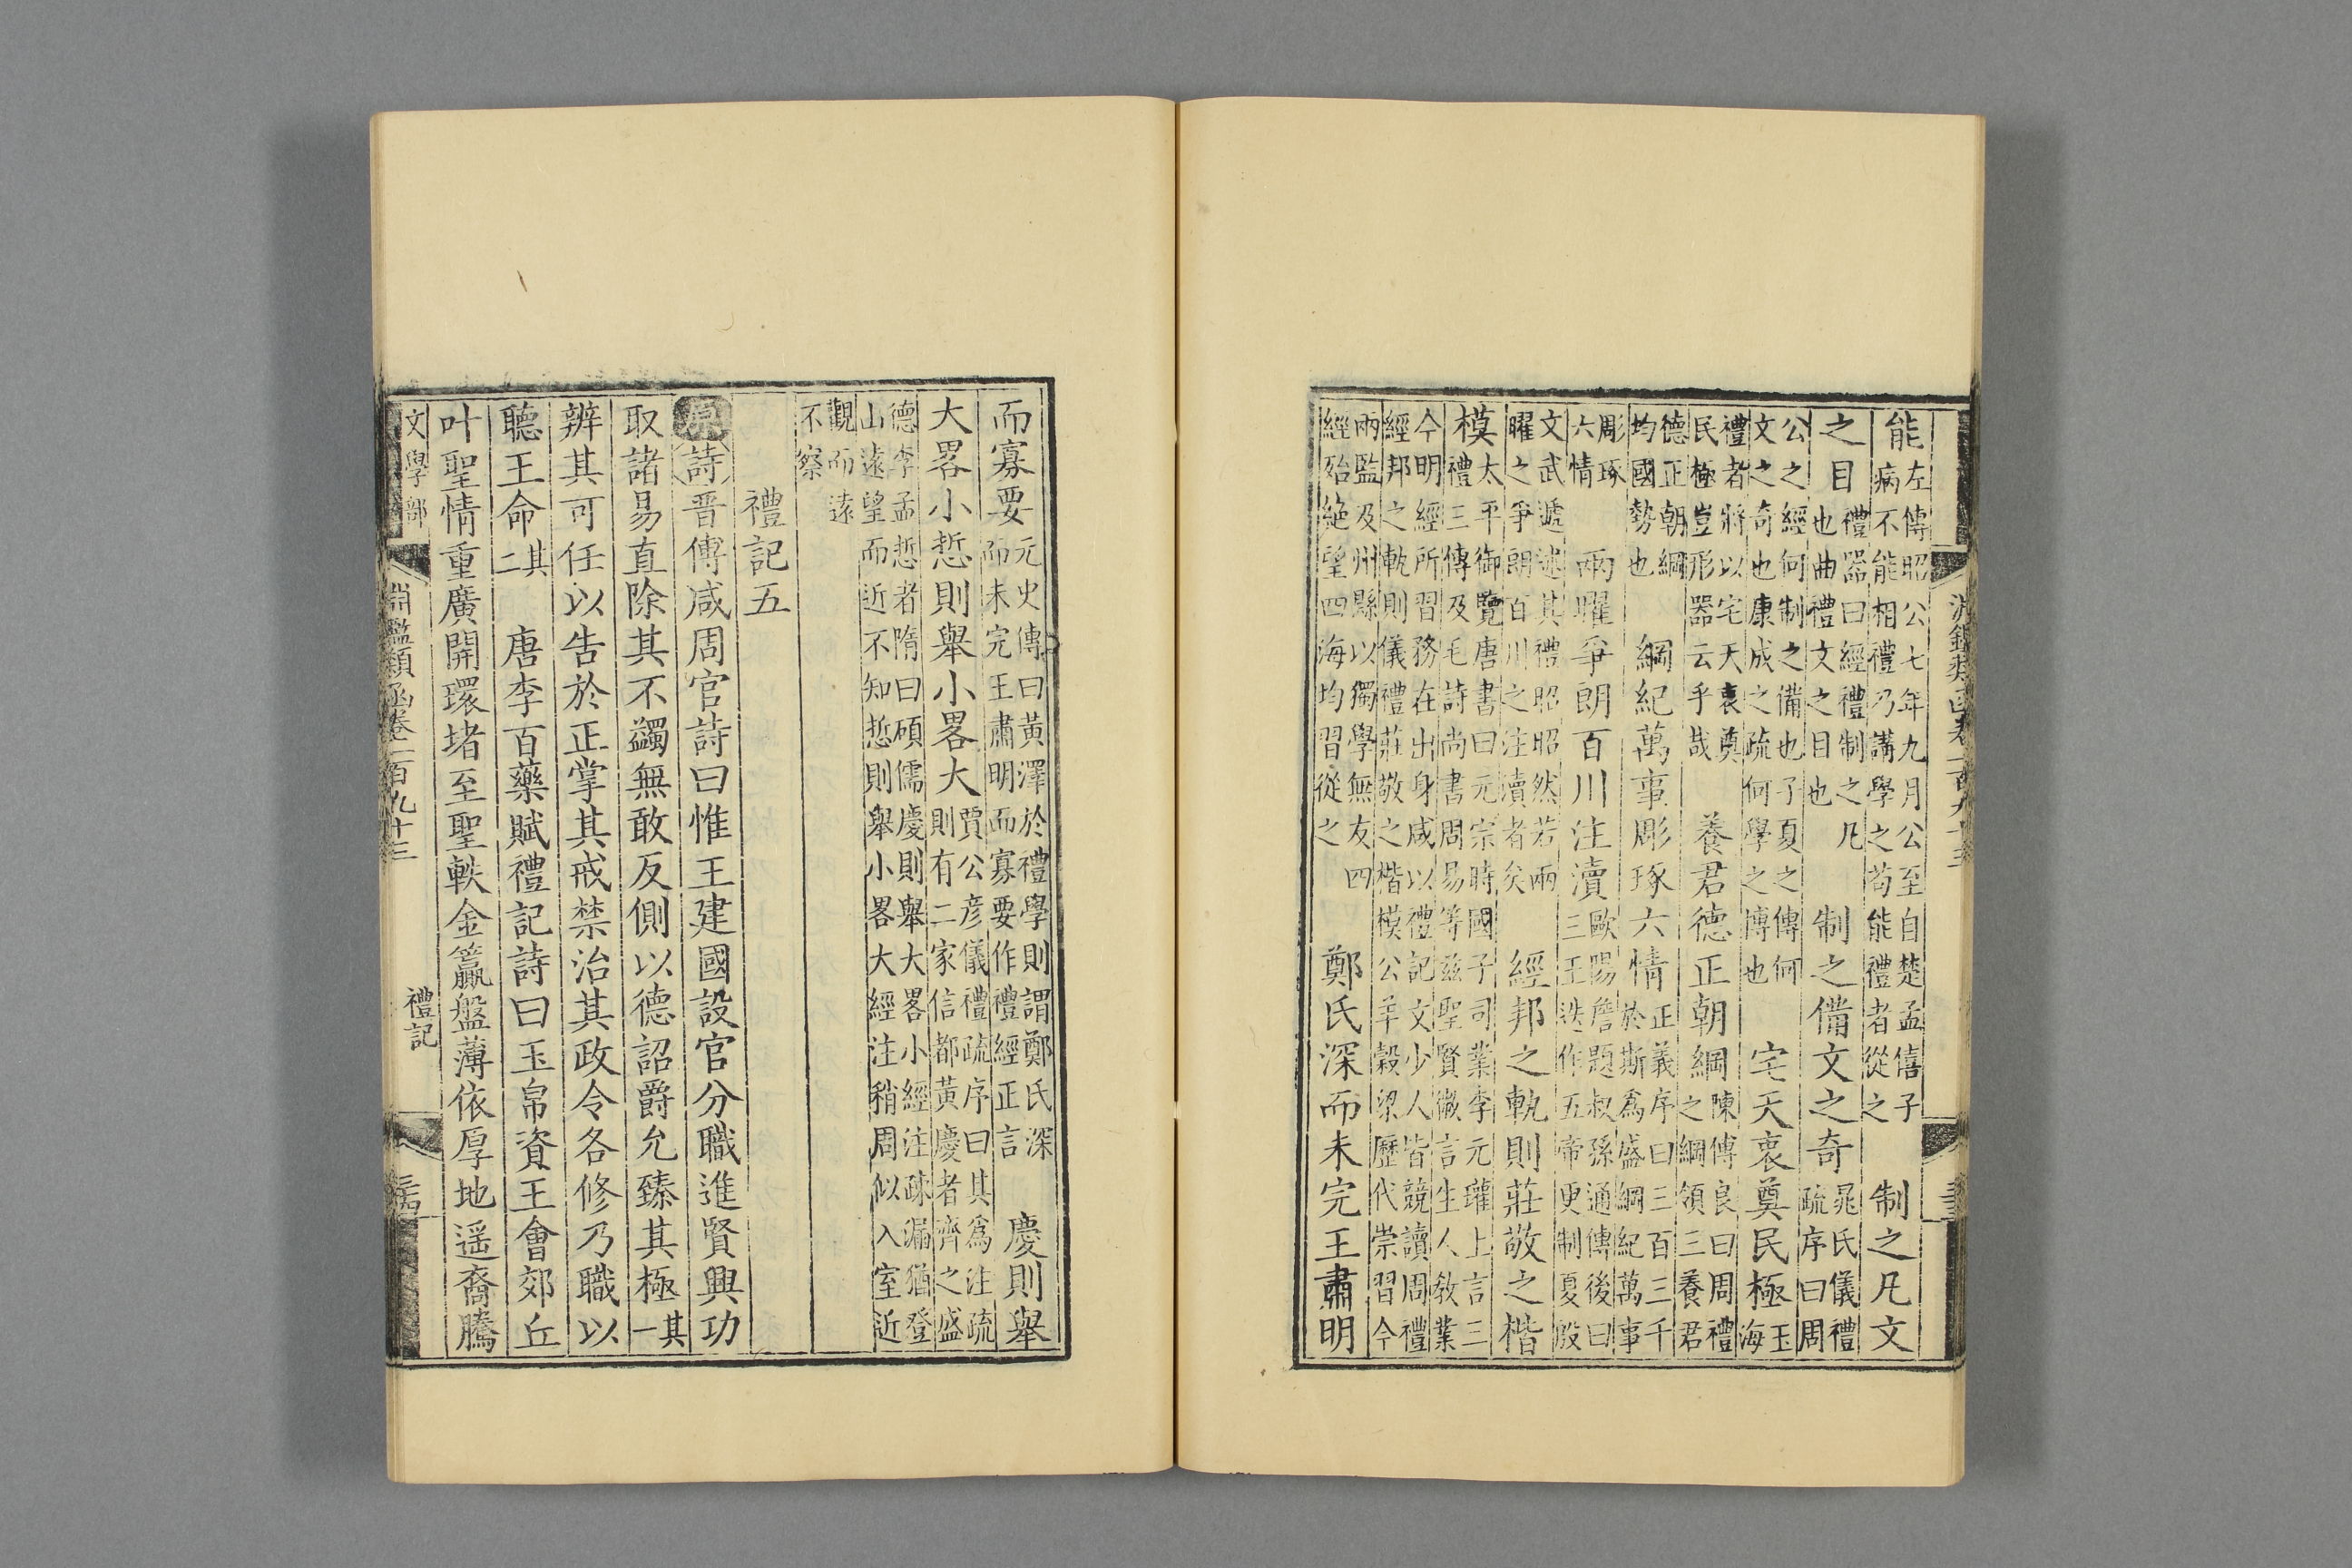 能左傳昭公七年九月公至自楚孟僖子病不能相禮乃講學之苟能禮者從之 制之凡文
之目禮器曰經禮制之凡也曲禮文之目也 制之備文之奇晁氏儀禮疏序曰周
公之經何制之備也子夏之傳何文之奇也康成之疏何學之博也 宅天衷奠民極玉海
禮者將以宅天衷奠民極豈形器云乎哉 養君德正朝綱陳傅良曰周禮之綱領三養君
德正朝綱均國勢也 綱紀萬事彫琢六情正義序曰三百三千於斯爲盛綱紀萬事
彫琢六情 兩曜爭朗百川注瀆歐陽詹題叔孫通傳後曰三王迭作五帝更制夏殷
文武遞述其禮昭昭然若兩曜之爭朗百川之注瀆者矣 經邦之軌則莊敬之楷
模太平御覽唐書曰元宗時國子司業李元瓘上言三禮三傳及毛詩尚書周易等兹聖賢微言生人敎業
今明經所習務在出身咸以禮記文少人皆競讀周禮經邦之軌則儀禮莊敬之楷模公羊穀梁歷代崇習今
兩監及州縣以獨學無友四經殆絶望四海均習從之 鄭氏深而未完王肅明
而寡要元史傳曰黃澤於禮學則謂鄭氏深而未完王肅明而寡要作禮經正言 慶則舉
大畧小悊則舉小畧大賈公彦儀禮疏序曰其爲注疏則有二家信都黃慶者齊之盛
德李孟悊者隋曰碩儒慶則舉大畧小經注疎漏猶登山遠望而近不知悊則舉小畧大經注稍周似入室近
觀而遠不察
禮記五
原詩晉傅咸周官詩曰惟王建國設官分職進賢興功
取諸易直除其不蠲無敢反側以德詔爵允臻其極其一
辨其可任以告於正掌其戒禁治其政令各修乃職以
聽王命其二 唐李百藥賦禮記詩曰玉帛資王會郊丘
叶聖情重廣開環堵至聖軼金籯盤薄依厚地遥裔騰
文學部 淵鑑類函卷一百九十三 禮記